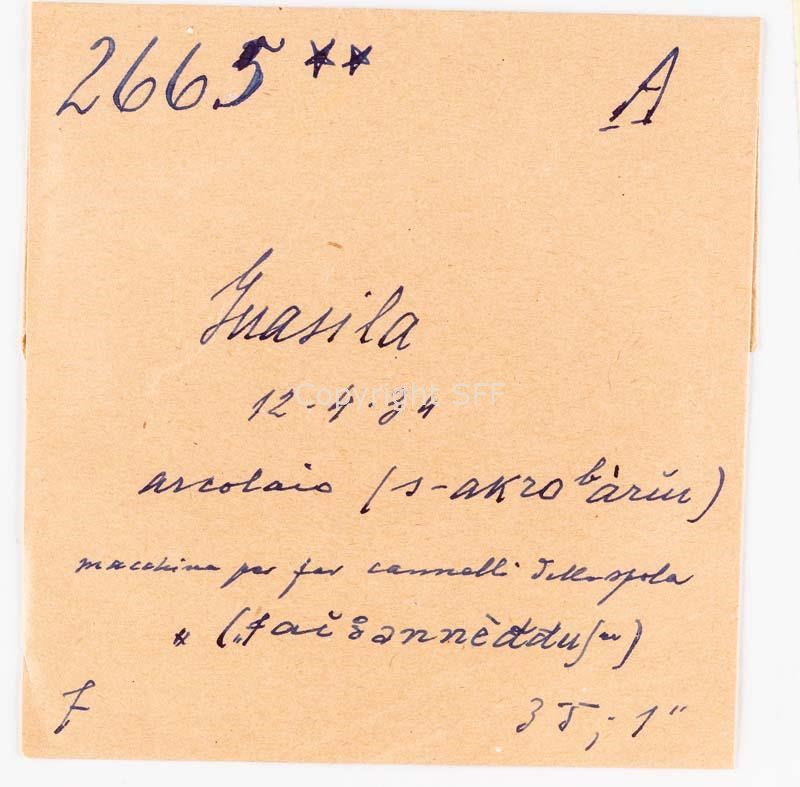 2665 ** A
Guasila
12.4.34
Copyright SFF
arcolaio (s-akrobàriu)
macchina per far cannelli della spola
* („faiganneḍḍus“)
f
1"